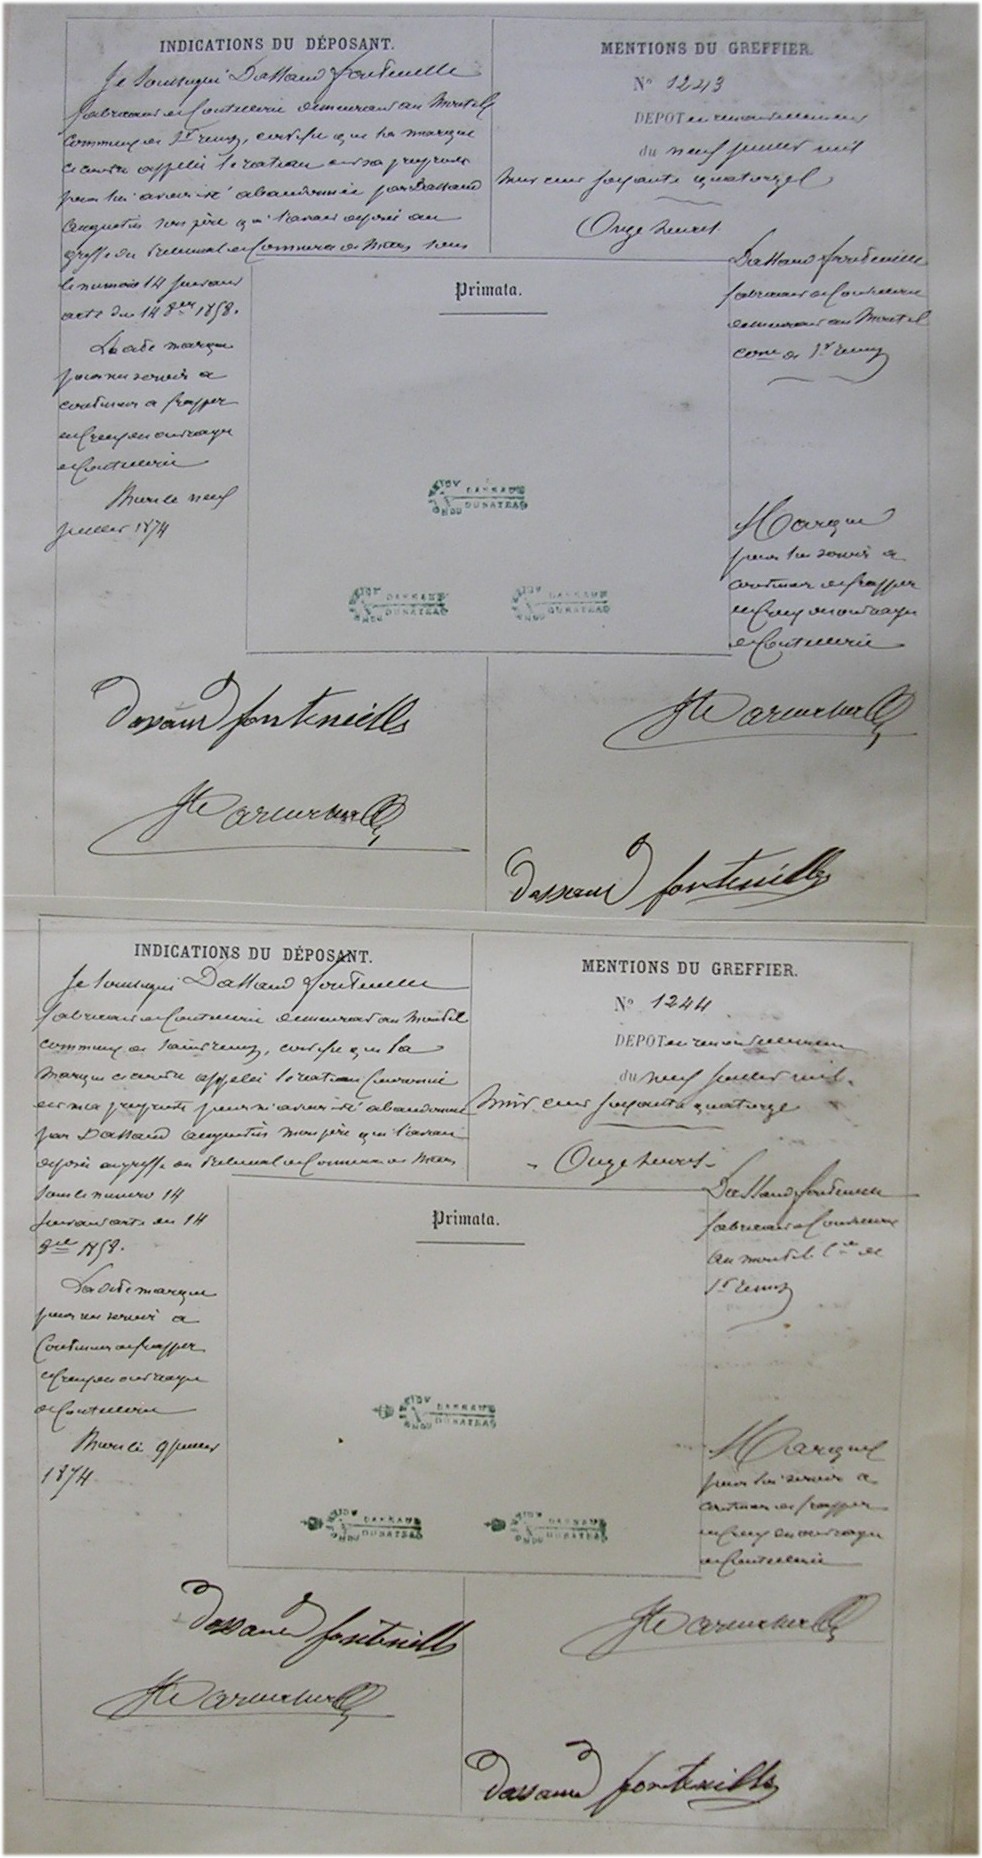 INDICATIONS DU DÉPOSANT.
Je soussigné Dassaud fontenille
fabricant de Coutellerie demeurant au Montel
commune de St remy, certifie que la marque
ci contre appelée
pour lui avoir été abandonnée par Dassaud
Augustin son père qui l'avait déposé au
greffe du Tribunal de Commerce de Thiers sous
le numéro 14 suivant
acte du 14 1858.
La dite marque
pour me servir à
continuer à frapper
en Creux en ouvrage
de Coutellerie
Thiers le neuf
juillet 1874
MENTIONS DU GREFFIER.
N° 1243
DEPOT en renouvellement
du neuf juillet mil
huit cent soixante quatorze
Onze heures
Dassaud fontenille
fabricant de Coutellerie
demeurant au Montel
cone de St Remy
Primata.
DASSAUD
DUNATEAU
DASSAUD
DUNATEAU
DASSAUD
DUNATEAU
Marque
pour lui servir à
continuer de frapper
en Creux en ouvrage
de Coutellerie
dassaud fontenille
dassaud fontenille
INDICATIONS DU DÉPOSANT.
Je soussigné Dassaud fontenille
fabricant de Coutellerie demeurant au Montel
commune de Saint remy, certifie que la
marque ci contre appelée
est ma propriété pour m'avoir été abandonnée
par Dassaud Augustin mon père qui l'avait
déposée au greffe du Tribunal de Commerce de Thiers
sous le numéro 14
suivant acte du 14
1858.
La dite marque
pour me servir à
Continuer de frapper
en Creux en ouvrage
de Coutellerie
Thiers le 9 juillet
1874
MENTIONS DU GREFFIER.
N° 1244
DEPOT en renouvellement
du neuf juillet mil
huit cent soixante quatorze
Onze heures
Dassaud fontenille
fabricant de Coutellerie
au montel Cne de
St Remy
Primata.
DASSAUD
DUNATEAU
DASSAUD
DUNATEAU
DASSAUD
DUNATEAU
Marque
pour lui servir à
continuer de frapper
en Creux en ouvrage
de Coutellerie
dassaud fontenille
dassaud fontenille